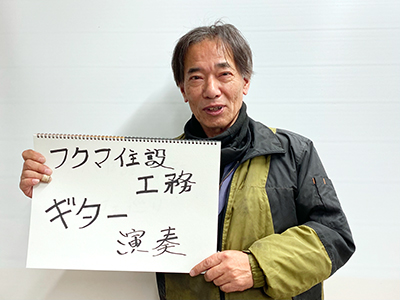 フクマ住設
工務
ギター
演奏